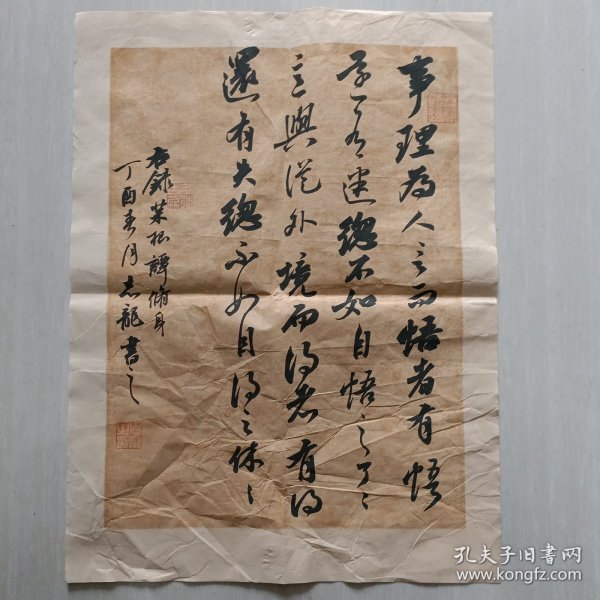 事理為人言而悟者有悟
還有迷總不如自悟之了〻
意與從外境而得者有得
還有失總不如自得之休〻
右錄菜根譚脩身
丁酉春月志龍書之
孔夫子旧书网
www.kongfz.com